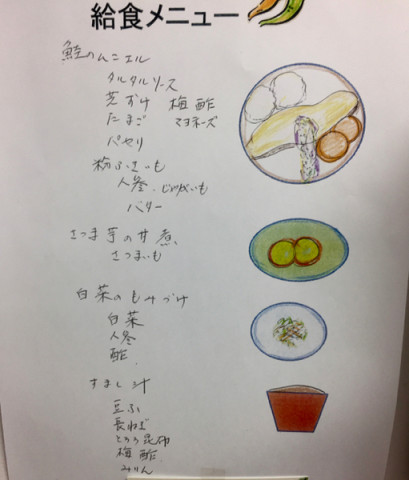 給食メニュー
鮭のムニエル
タルタルソース
芝づけ 梅酢
たまご マヨネーズ
パセリ
粉ふきいも
人参 じゃがいも
バター
さつま芋の甘煮
さつまいも
白菜のもみづけ
白菜
人参
酢
すまし汁
豆ふ
長ねぎ
とろろ昆布
梅酢
みりん